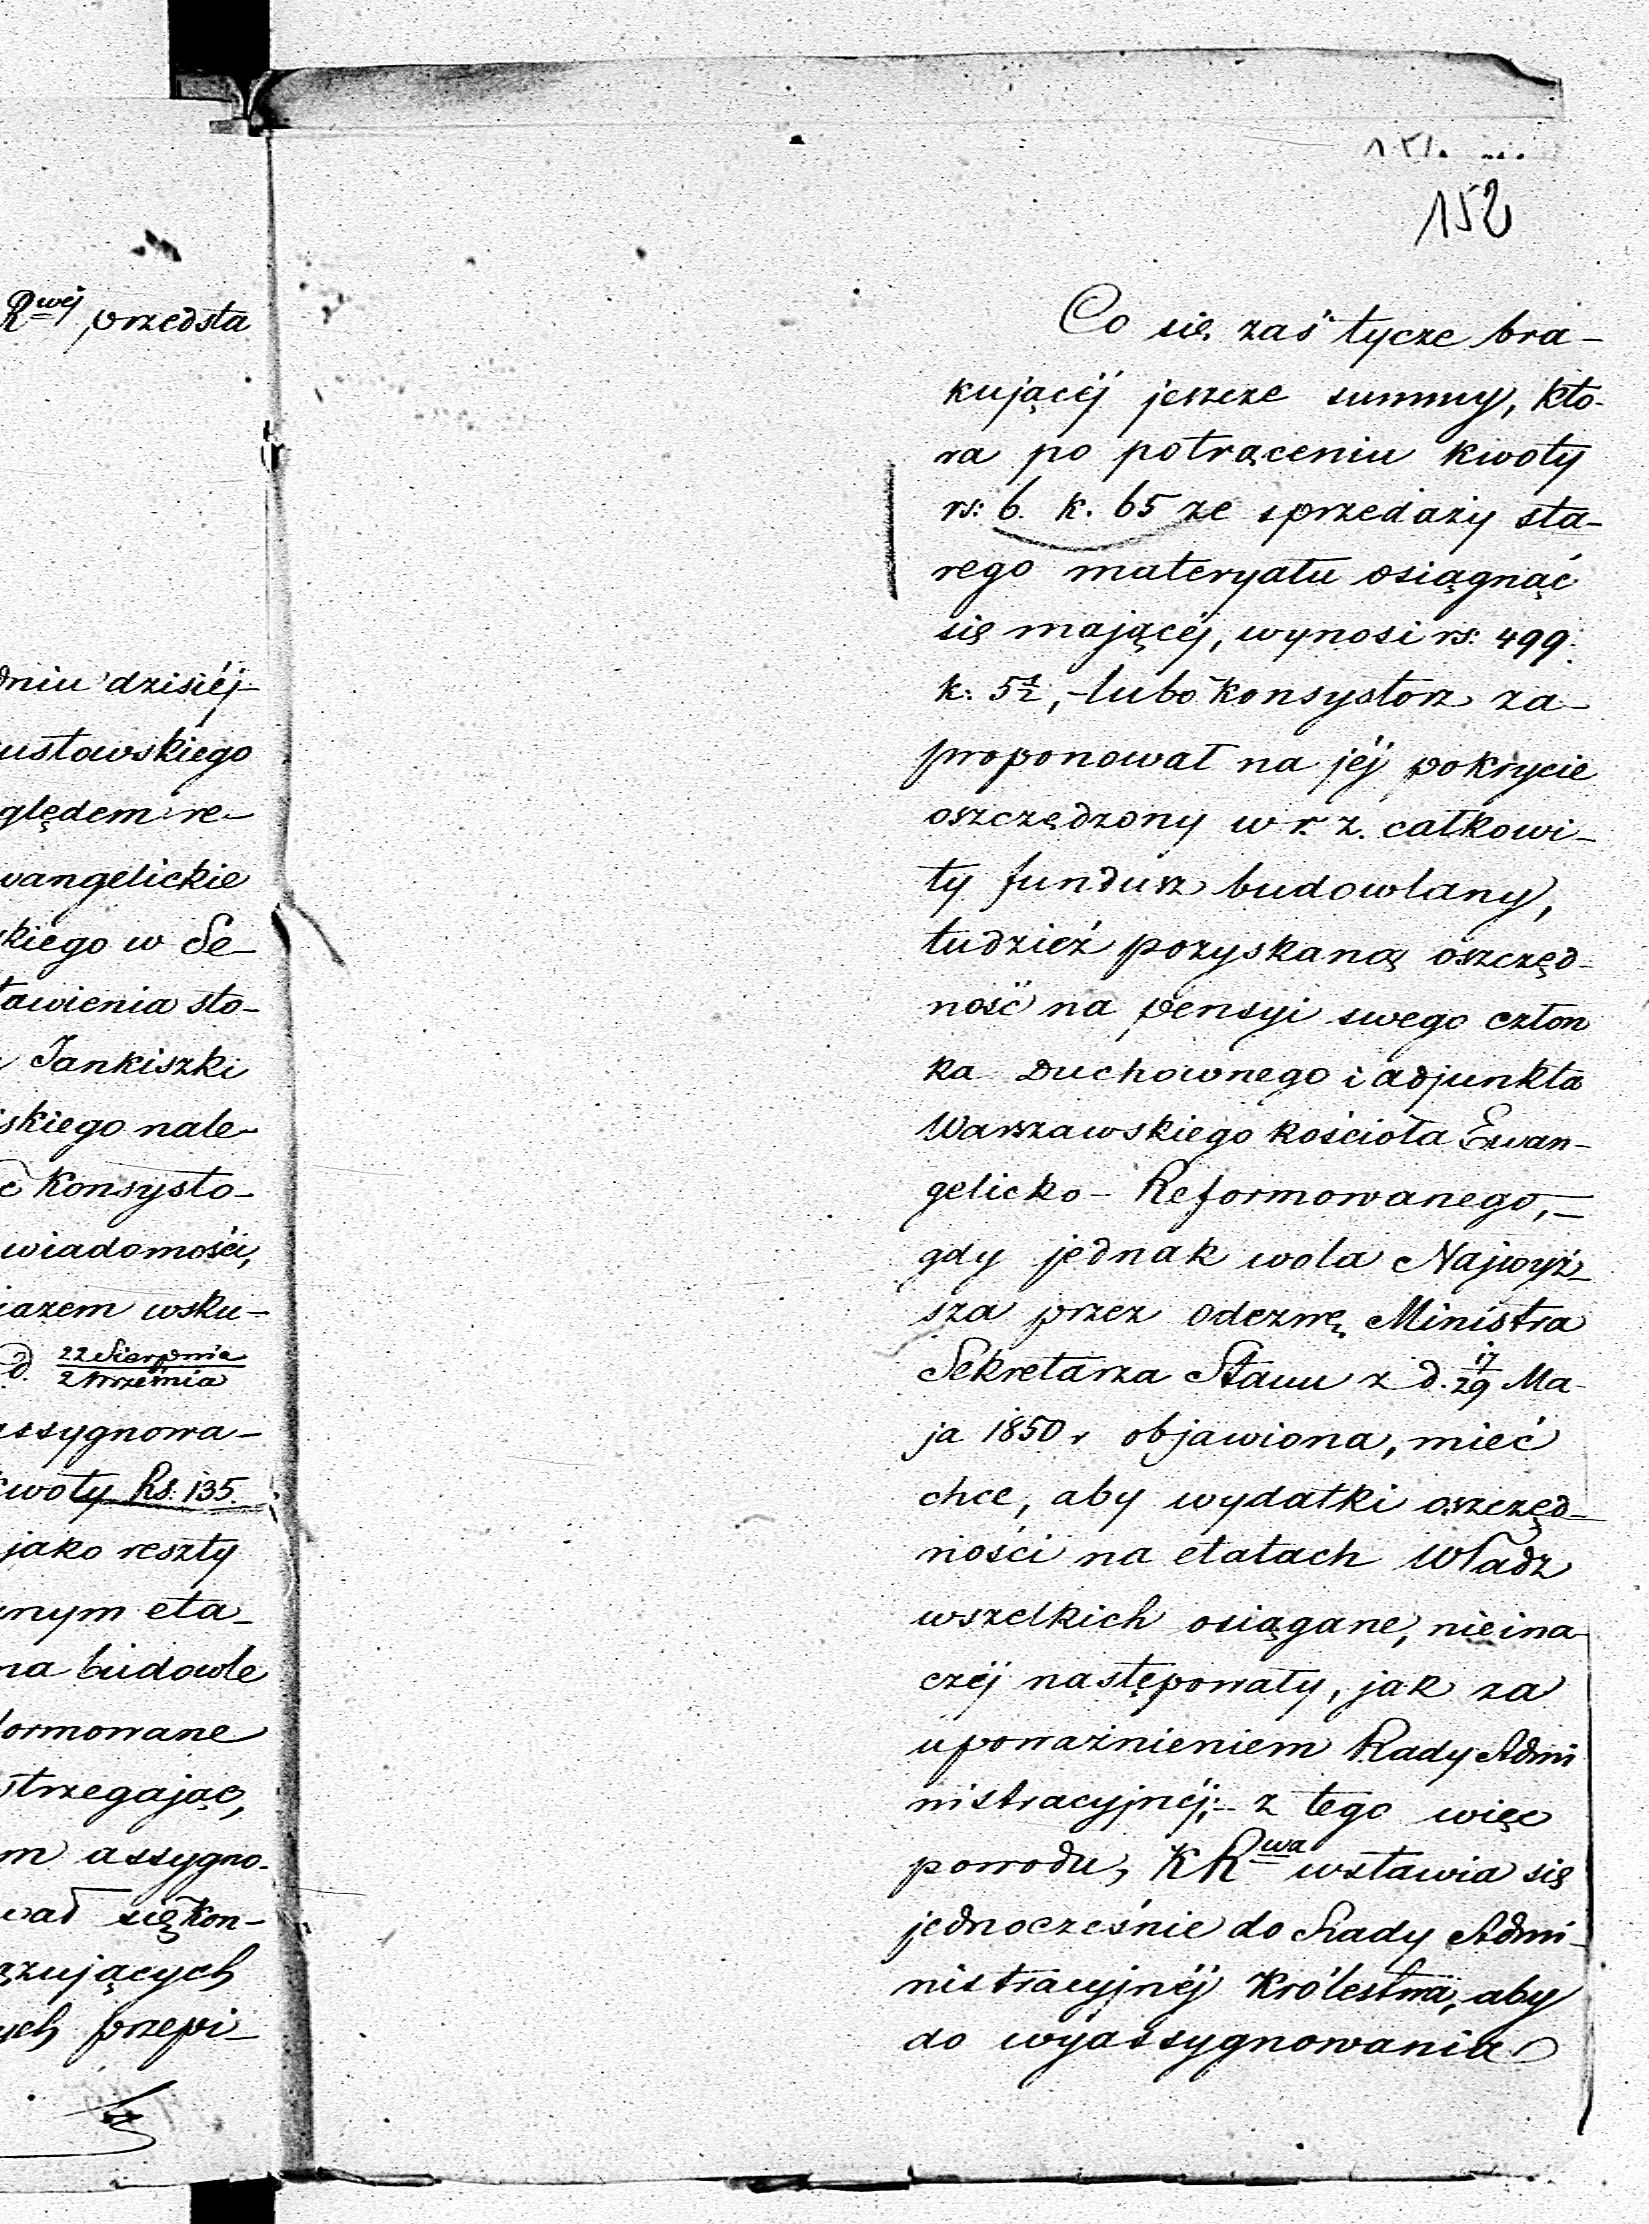 Rwéj przedsta
dniu dzisiéj-
ustowskiego
ględem re-
wangelickie
skiego w Se-
tawienia sto-
Jankiszki
skiego nale-
Konsysto-
wiadomości,
iazem wsku-
d. 22 Sierpnia
2 Września
assygnowa-
kwoty Rs. 135.
jako reszty
nym eta-
na budowle
formowane
strzegając,
m assygno-
się Kon-
ązujących
ych przepi-
152
Co się zaś tycze bra-
kującéj jeszcze summy, któ-
ra po potrąceniu kwoty
rs: 6. k. 65 ze sprzedaży sta-
rego materyału osiągnąć
się mającéj, wynosi rs: 499.
k: 5½, - lubo Konsystorz za-
proponował na jéj pokrycie
oszczędzony w r. z. całkowi-
ty fundusz budowlany,
tudzież pozyskaną oszczęd-
ność na pensyi swego człon
ka Duchownego i adjunkta
Warszawskiego kościoła Ewan-
gelicko - Reformowanego, -
gdy jednak wola Najwyż-
sza przez odezwę Ministra
Sekretarza Stanu z d. 17/29 Ma-
ja 1850 r objawiona, mieć
chce, aby wydatki oszczęd-
ności na etatach Władz
wszelkich osiągane, nieina-
czéj następowały, jak za
upoważnieniem Rady Admi
nistracyjnéj; - z tego więc
powodu, K Rwa wstawia się
jednocześnie do Rady Admi-
nistracyjnéj Królestwa, aby
do wyassygnowania